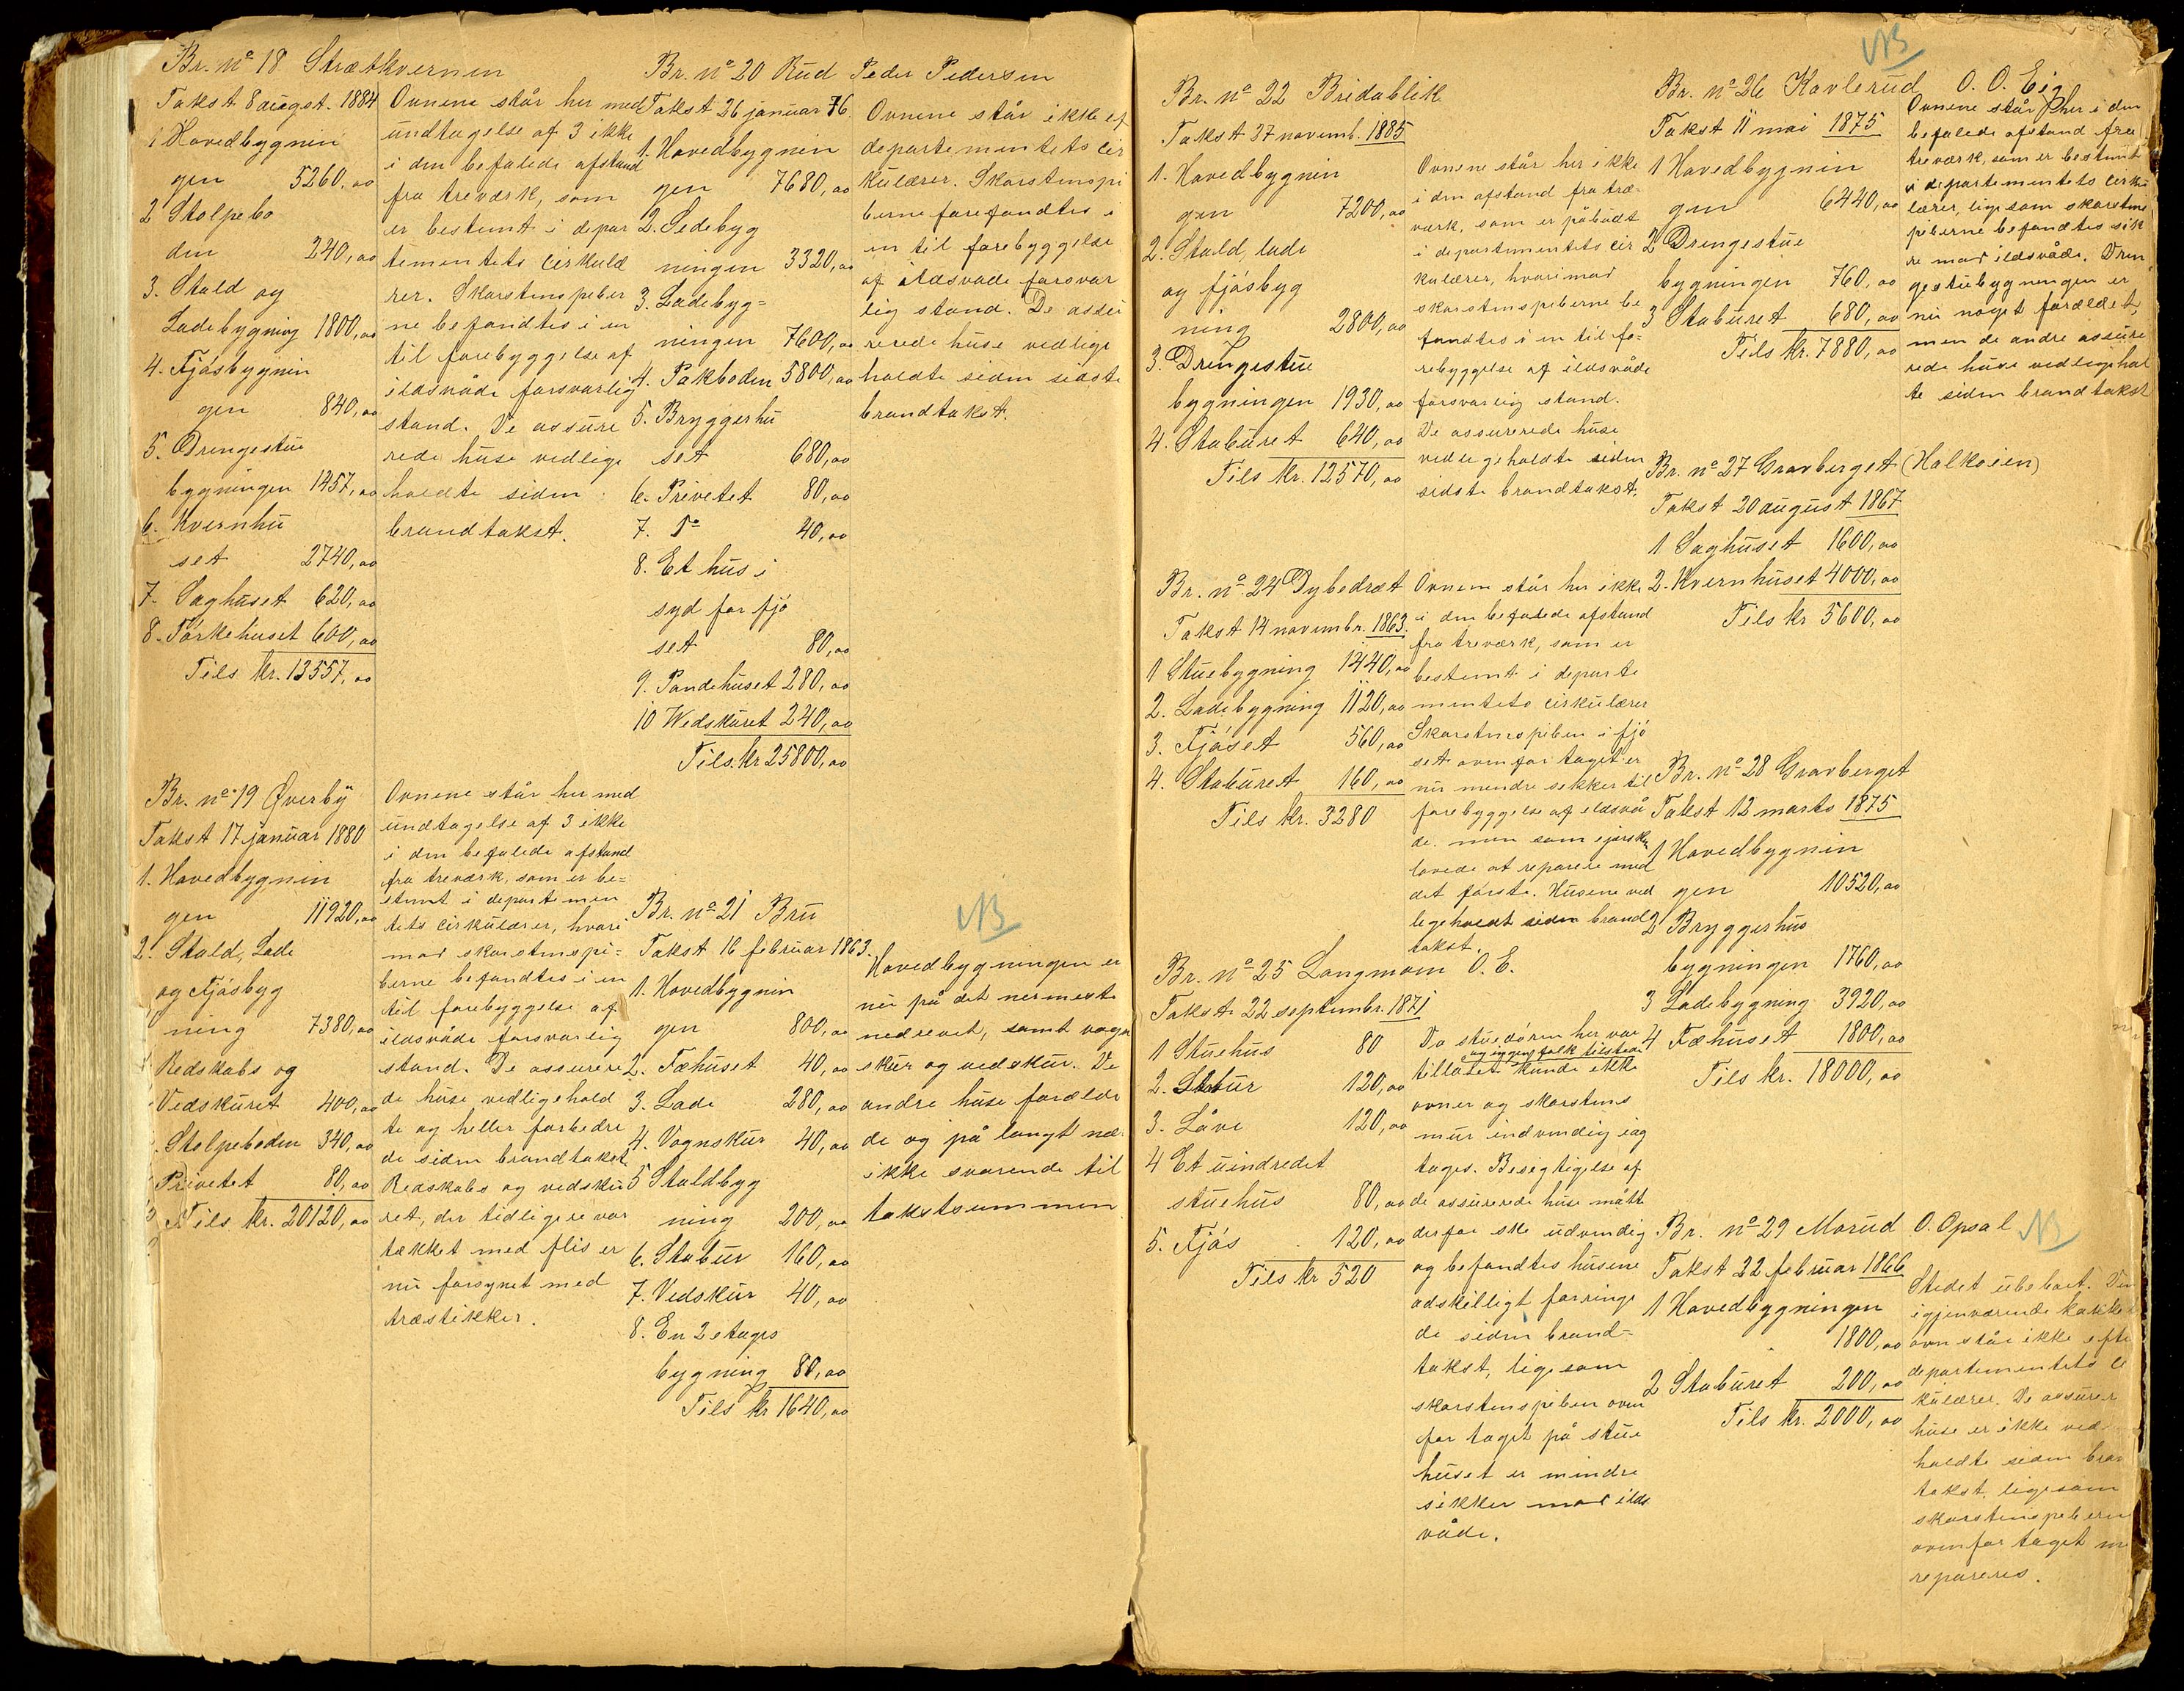 Br. nº 18 Strætkvernen
Takst 8 august. 1884
1 Hovedbygnin
gen 5260,00
2 Stolpebo
den 240,00
3. Stald og
Ladebygning 1800,00
4. Fjøsbygnin
gen 840,00
5. Drengestue
bygningen 1457,00
6. Kvernhu
set 2740,00
7. Saghuset 620,00
8. Tørkehuset 600,00
Tils kr. 13557,00
Ovnene står her med
undtagelse af 3 ikke
i den befalede afstand
fra treværk, som
er bestemt i depar
tementets cirkulæ
rer. Skorstenspiber
ne befandtes i en
til forebyggelse af
ildsvåde forsvarlig
stand. De assure
rede huse vedlige
holdte siden
brandtakst.
Br. nº 19 Øverby
Takst 17 januar 1880
1. Hovedbygnin
gen 11920,00
2. Stald, Lade
og Fjøsbyg
ning 7380,00
Redskabs og
Vedskuret 400,00
Stolpeboden 340,00
Privetet 80,00
Tils kr. 20120,00
Ovnene står her med
undtagelse af 3 ikke
i den befalede afstand
fra treværk, som er be=
stemt i departemen
tets cirkulærer, hvori
mod skorstenspi=
berne befandtes i en
til forebyggelse af
ildsvåde forsvarlig
stand. De assurere
de huse vedligehold
te og heller forbedre
de siden brandtakst.
Redskabs og vedsku
ret, der tidligere var
tækket med flis er
nu forsynet med
træstikker.
Br. nº 20 Rud Peder Pedersen
Takst 26 januar 76
1. Hovedbygnin
gen 7680,00
2. Sidebyg
ningen 3320,00
3. Ladebyg=
ningen 7600,00
4. Pakboden 5800,00
5. Bryggerhu
set 680,00
6. Privetet 80,00
7. Dº 40,00
8. Et hus i
syd for fjø
set 80,00
9. Pandehuset 280,00
10 Wedskuret 240,00
Tils. kr 25800,00
Ovnene står ikke ef
departementets cir
kulærer. Skorstenspi
berne forefandtes i
en til forebyggelse
af ildsvåde forsvar
lig stand. De assu
rerede huse vedlige
holdte siden sidste
brandtakst.
Br. nº 21 Bru
Takst 16 februar 1863.
1. Hovedbygnin
gen 800,00
2. Fæhuset 40,00
3. Lade 280,00
4. Vognskur 40,00
5 Staldbyg
ning 200,00
6. Stabur 160,00
7. Vedskur 40,00
8. En 2 etages
bygning 80,00
Tils kr 1640,00
NB
Hovedbygningen er
nu på det nermeste
nedrevet, samt vogn
skur og vedskur. De
andre huse forælde
de og på langt næ
ikke svarende til
takstsummen
Br. nº 22 Bridablik
Takst 27 novemb. 1885
1. Hovedbygnin
gen 7200,00
2. Stald, lade
og fjøsbyg
ning 2800,00
3. Drengestue
bygningen 1930,00
4. Staburet 640,00
Tils kr. 12570,00
Ovnene står her ikke
i den afstand fra træ-
værk, som er påbudt
i departementets cir
kulærer, hvorimod
skorstenspiberne be
fandtes i en til fo=
rebyggelse af ildsvåde
forsvarlig stand.
De assurerede huse
vedligeholdte siden
sidste brandtakst.
Br. nº 24 Dybedræt
Takst 14 novembr. 1863.
1 Stuebygning 1440,00
2. Ladebygning 1120,00
3. Fjøset 560,00
4. Staburet 160,00
Tils kr. 3280
Ovnen står her ikke
i den befalede afstand
fra treværk, som er
bestemt i departe
mentets cirkulærer
Skorstenspiben i fjø
set ovenfor taget er
nu mindre sikker til
forebyggelse af ildsvå
de. men som ejeren
lovede at reparere med
det første. Husene ved
ligeholdt siden brand
takst.
Br. nº 25 Langmoen O. E.
Takst 22 septembr. 1871
1 Stuehus 80
2. Stabur 120,00
3. Låve 120,00
4 Et uindredet
stuehus 80,00
5. Fjøs 120,00
Tils kr 520
Da stuedøren her var
og ingen folk tilstede
tillåset kunde ikke
ovner og skorstens
mur indvendig iag
tages. Besigtigelse af
de assurerede huse måtte
derfor ske udvendig
og befandtes husene
adskilligt forringe
de siden brand=
takst, ligesom
skorstenspiben oven
for taget på stue
huset er mindre
sikker mod ilds
våde.
NB
Br. nº 26 Kavlerud O. O. Eig
Takst 11 mai 1875
1 Hovedbygnin
gen 6440,00
2 Drengestue
bygningen 760,00
3 Staburet 680,00
Tils kr. 7880,00
Ovnene står her i den
befalede afstand fra
treværk, som er bestemt
i departementets cirku
lærer, ligesom skorstens
piberne befandtes sik
re mod ildsvåde. Dren
gestubygningen er
nu noget forældet,
men de andre assure
rede huse vedligehol
te siden brandtakst
Br. nº 27 Gravberget (Halkoien)
Takst 20 august 1867
1 Saghuset 1600,00
2. Kvernhuset 4000,00
Tils kr 5600,00
Br. nº 28 Gravberget
Takst 12 marts 1875
1 Hovedbygnin
gen 10520,00
2 Bryggerhus
bygningen 1760,00
3 Ladebygning 3920,00
4 Fæhuset 1800,00
Tils kr. 18000,00
Br. nº 29 Morud O. Opsal NB
Takst 22 februar 1866
1 Hovedbygningen
1800,00
2 Staburet 200,00
Tils kr. 2000,00
Stedet ubeboet. Den
igjenværende kakkel
ovn står ikke efte
departementets ci
kulærer. De assurer
huse er ikke ved
holdte siden bran
takst, ligesom
skorstenspiberne
ovenfor taget må
repareres.